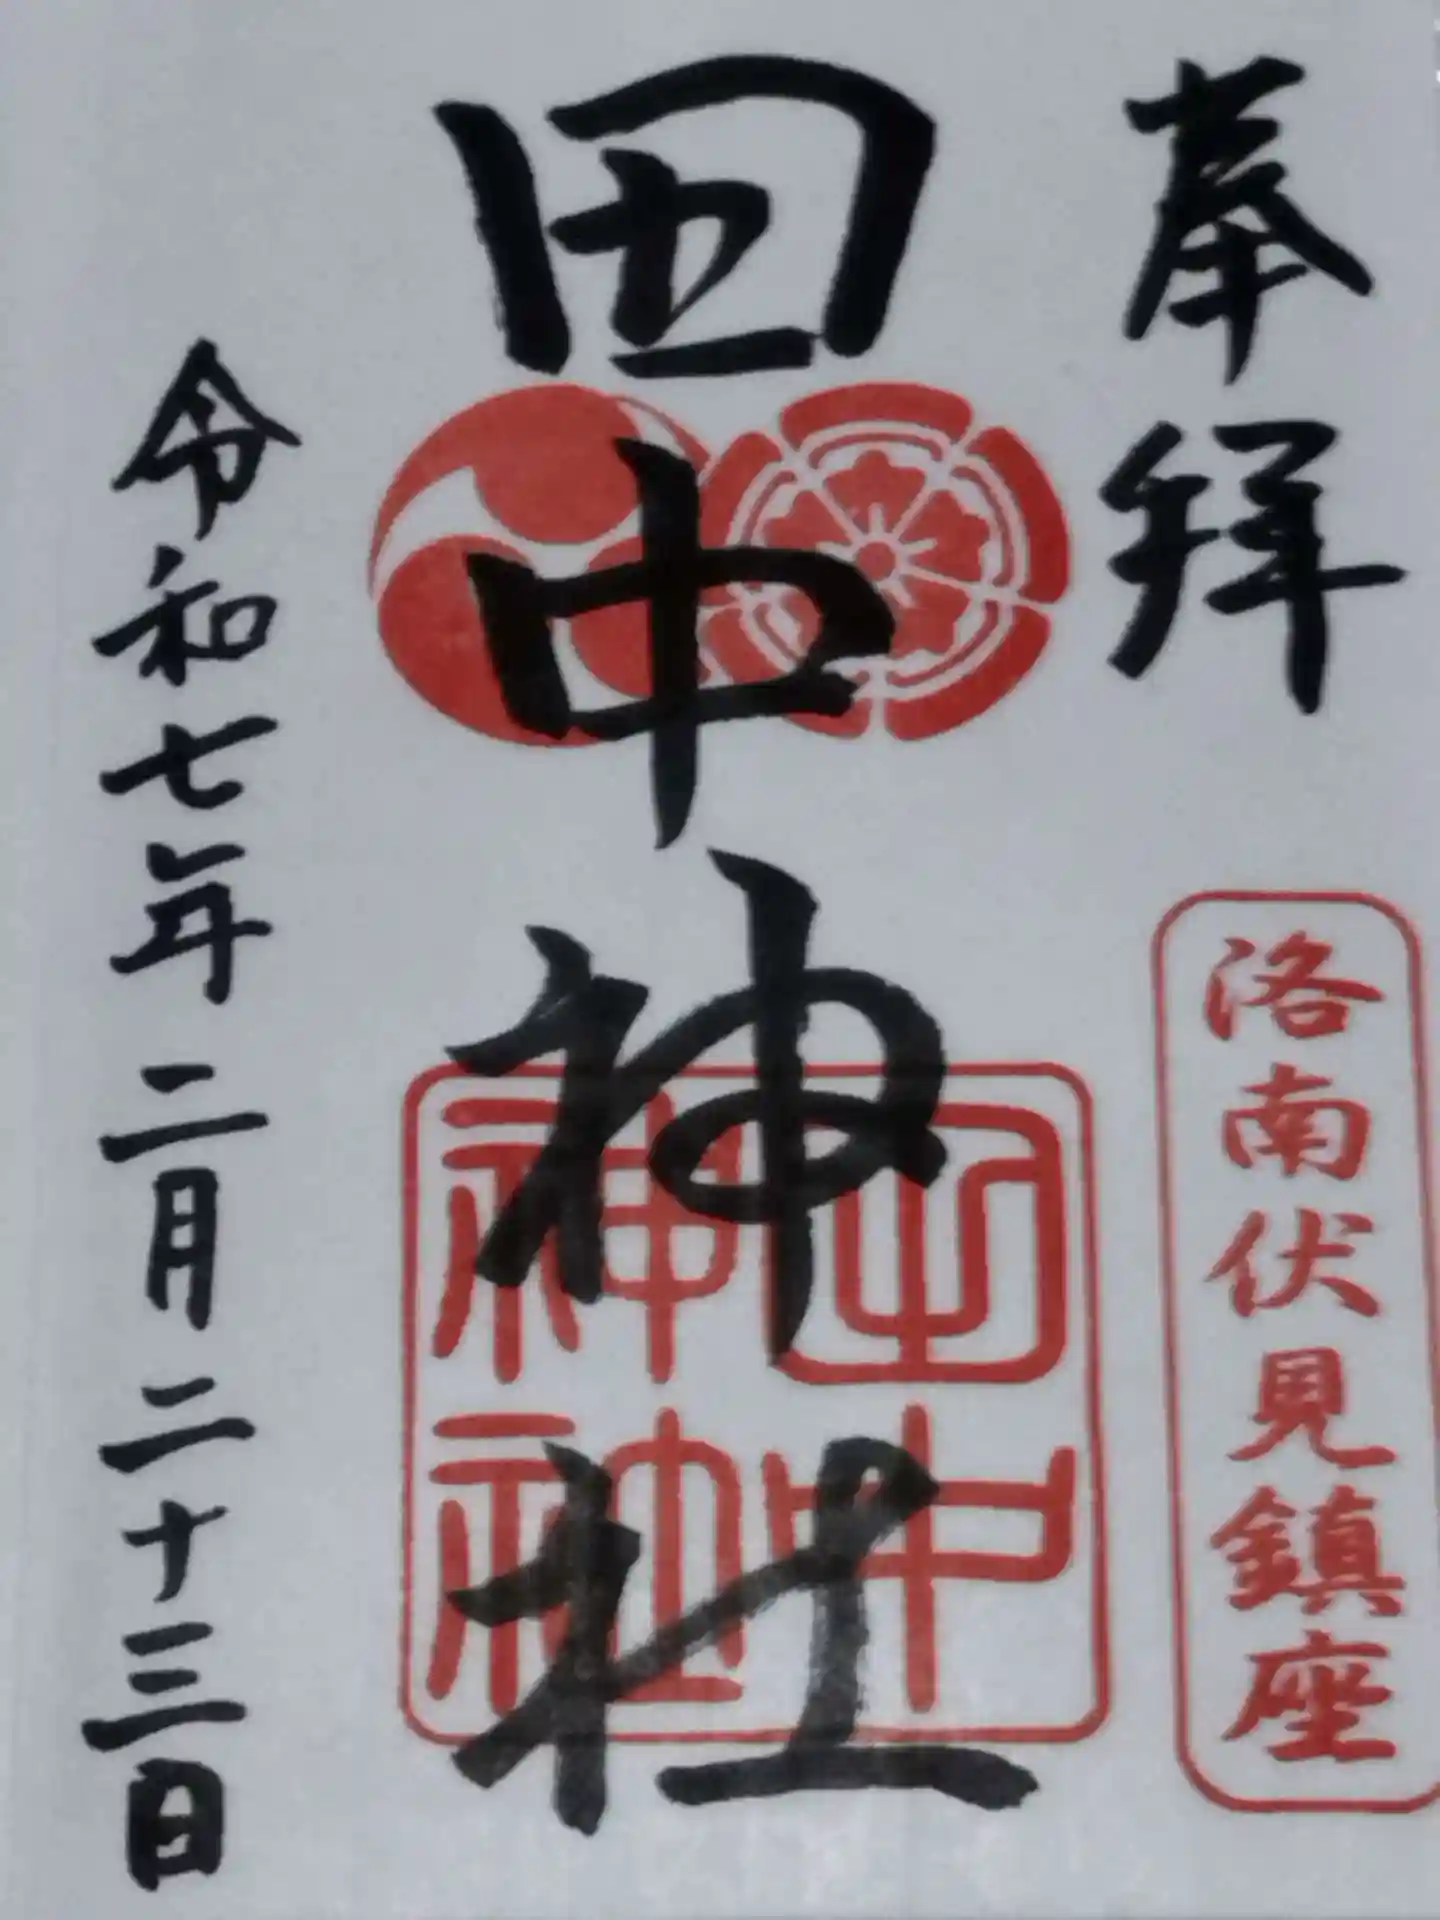 奉拜
洛南伏見鎮座
田中神社
田中
神社
令和七年二月二十三日